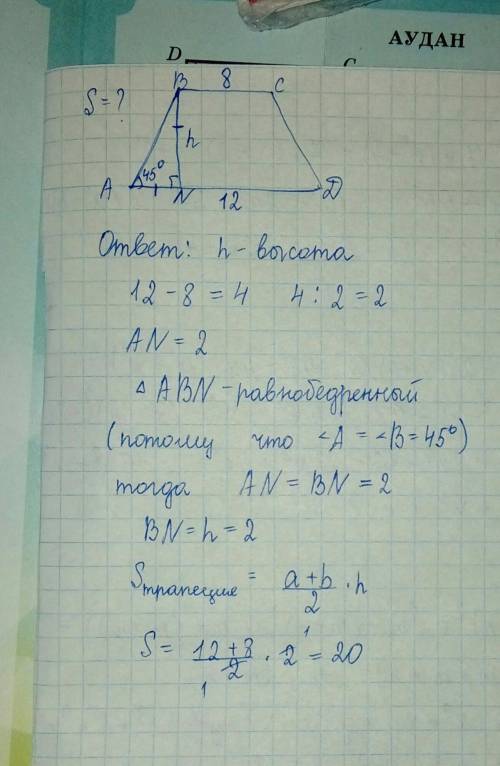 АУДАН
D
C
S = ?
B 8 C
h
45°
A N 12 D
Ответ: h - высота
12 - 8 = 4 4 : 2 = 2
AN = 2
△ ABN - равнобедренный
(потому что ∠A = ∠B = 45°)
тогда AN = BN = 2
BN = h = 2
Sтрапеция = a + b / 2 · h
S = 12 + 8 / 2 · 2 = 20
1 1